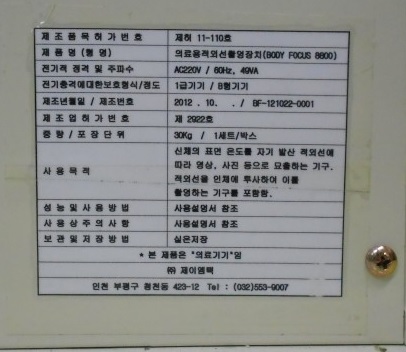 제조품목허가번호 제허 11-110호
제품명 (형명) 의료용적외선촬영장치(BODY FOCUS 8600)
전기적 정격 및 주파수 AC220V / 60Hz, 49VA
전기충격에대한보호형식/정도 1급기기 / B형기기
제조년월일 / 제조번호 2012 . 10. . / BF-121022-0001
제조업허가번호 제 2922호
중량 / 포장단위 30Kg / 1세트/박스
사용목적 신체의 표면 온도를 자기 발산 적외선에
따라 영상, 사진 등으로 묘출하는 기구.
적외선을 인체에 투사하여 이를
촬영하는 기구를 포함함.
성능 및 사용방법 사용설명서 참조
사용상주의사항 사용설명서 참조
보관 및 저장방법 실온저장
* 본 제품은 "의료기기"임
㈜ 제이엠텍
인천 부평구 청천동 423-12 Tel : (032)553-9007